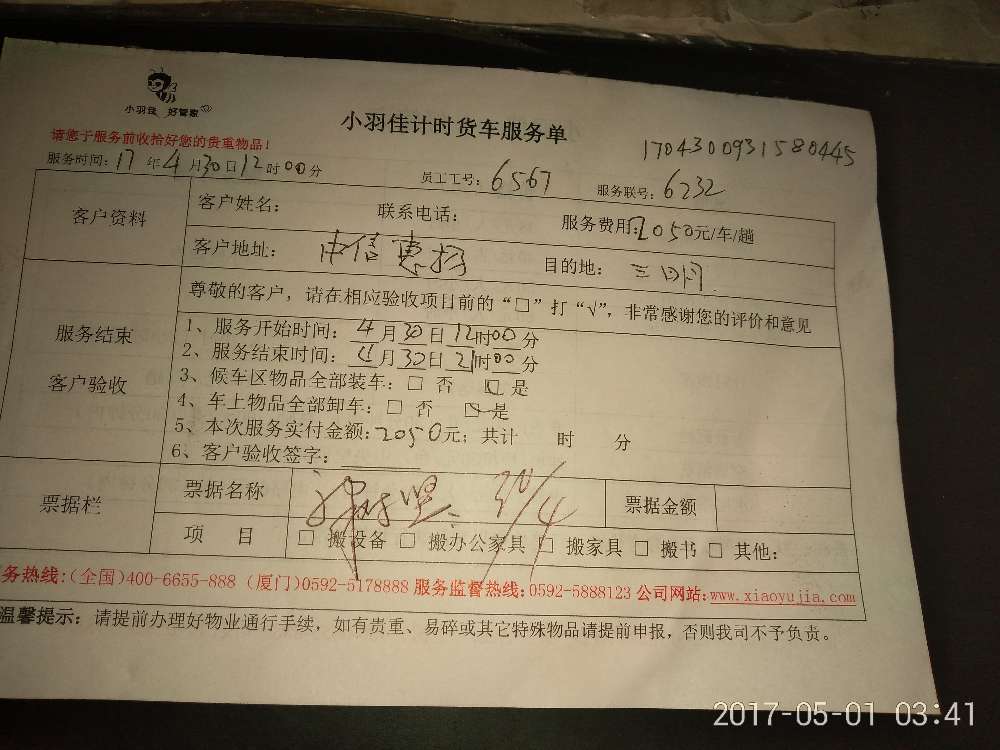 小羽佳 好管家
小羽佳计时货车服务单
请您于服务前收拾好您的贵重物品！
1704300931580445
服务时间：17年4月30日12时00分 员工工号：6567 服务联号：6232
客户资料
客户姓名： 联系电话： 服务费用：2050元/车/趟
客户地址：中信惠扬 目的地：三明
服务结束
客户验收
尊敬的客户，请在相应验收项目前的“□”打“√”，非常感谢您的评价和意见
1、服务开始时间：4月30日12时00分
2、服务结束时间：4月30日21时00分
3、候车区物品全部装车：□ 否 ☑ 是
4、车上物品全部卸车：□ 否 ☑ 是
5、本次服务实付金额：2050元；共计 时 分
6、客户验收签字：
票据栏
票据名称 票据金额
30/4
项 目 □ 搬设备 □ 搬办公家具 □ 搬家具 □ 搬书 □ 其他：
务热线：(全国)400-6655-888 (厦门)0592-5178888 服务监督热线：0592-5888123 公司网站：www.xiaoyujia.com
温馨提示：请提前办理好物业通行手续，如有贵重、易碎或其它特殊物品请提前申报，否则我司不予负责。
2017-05-01 03:41